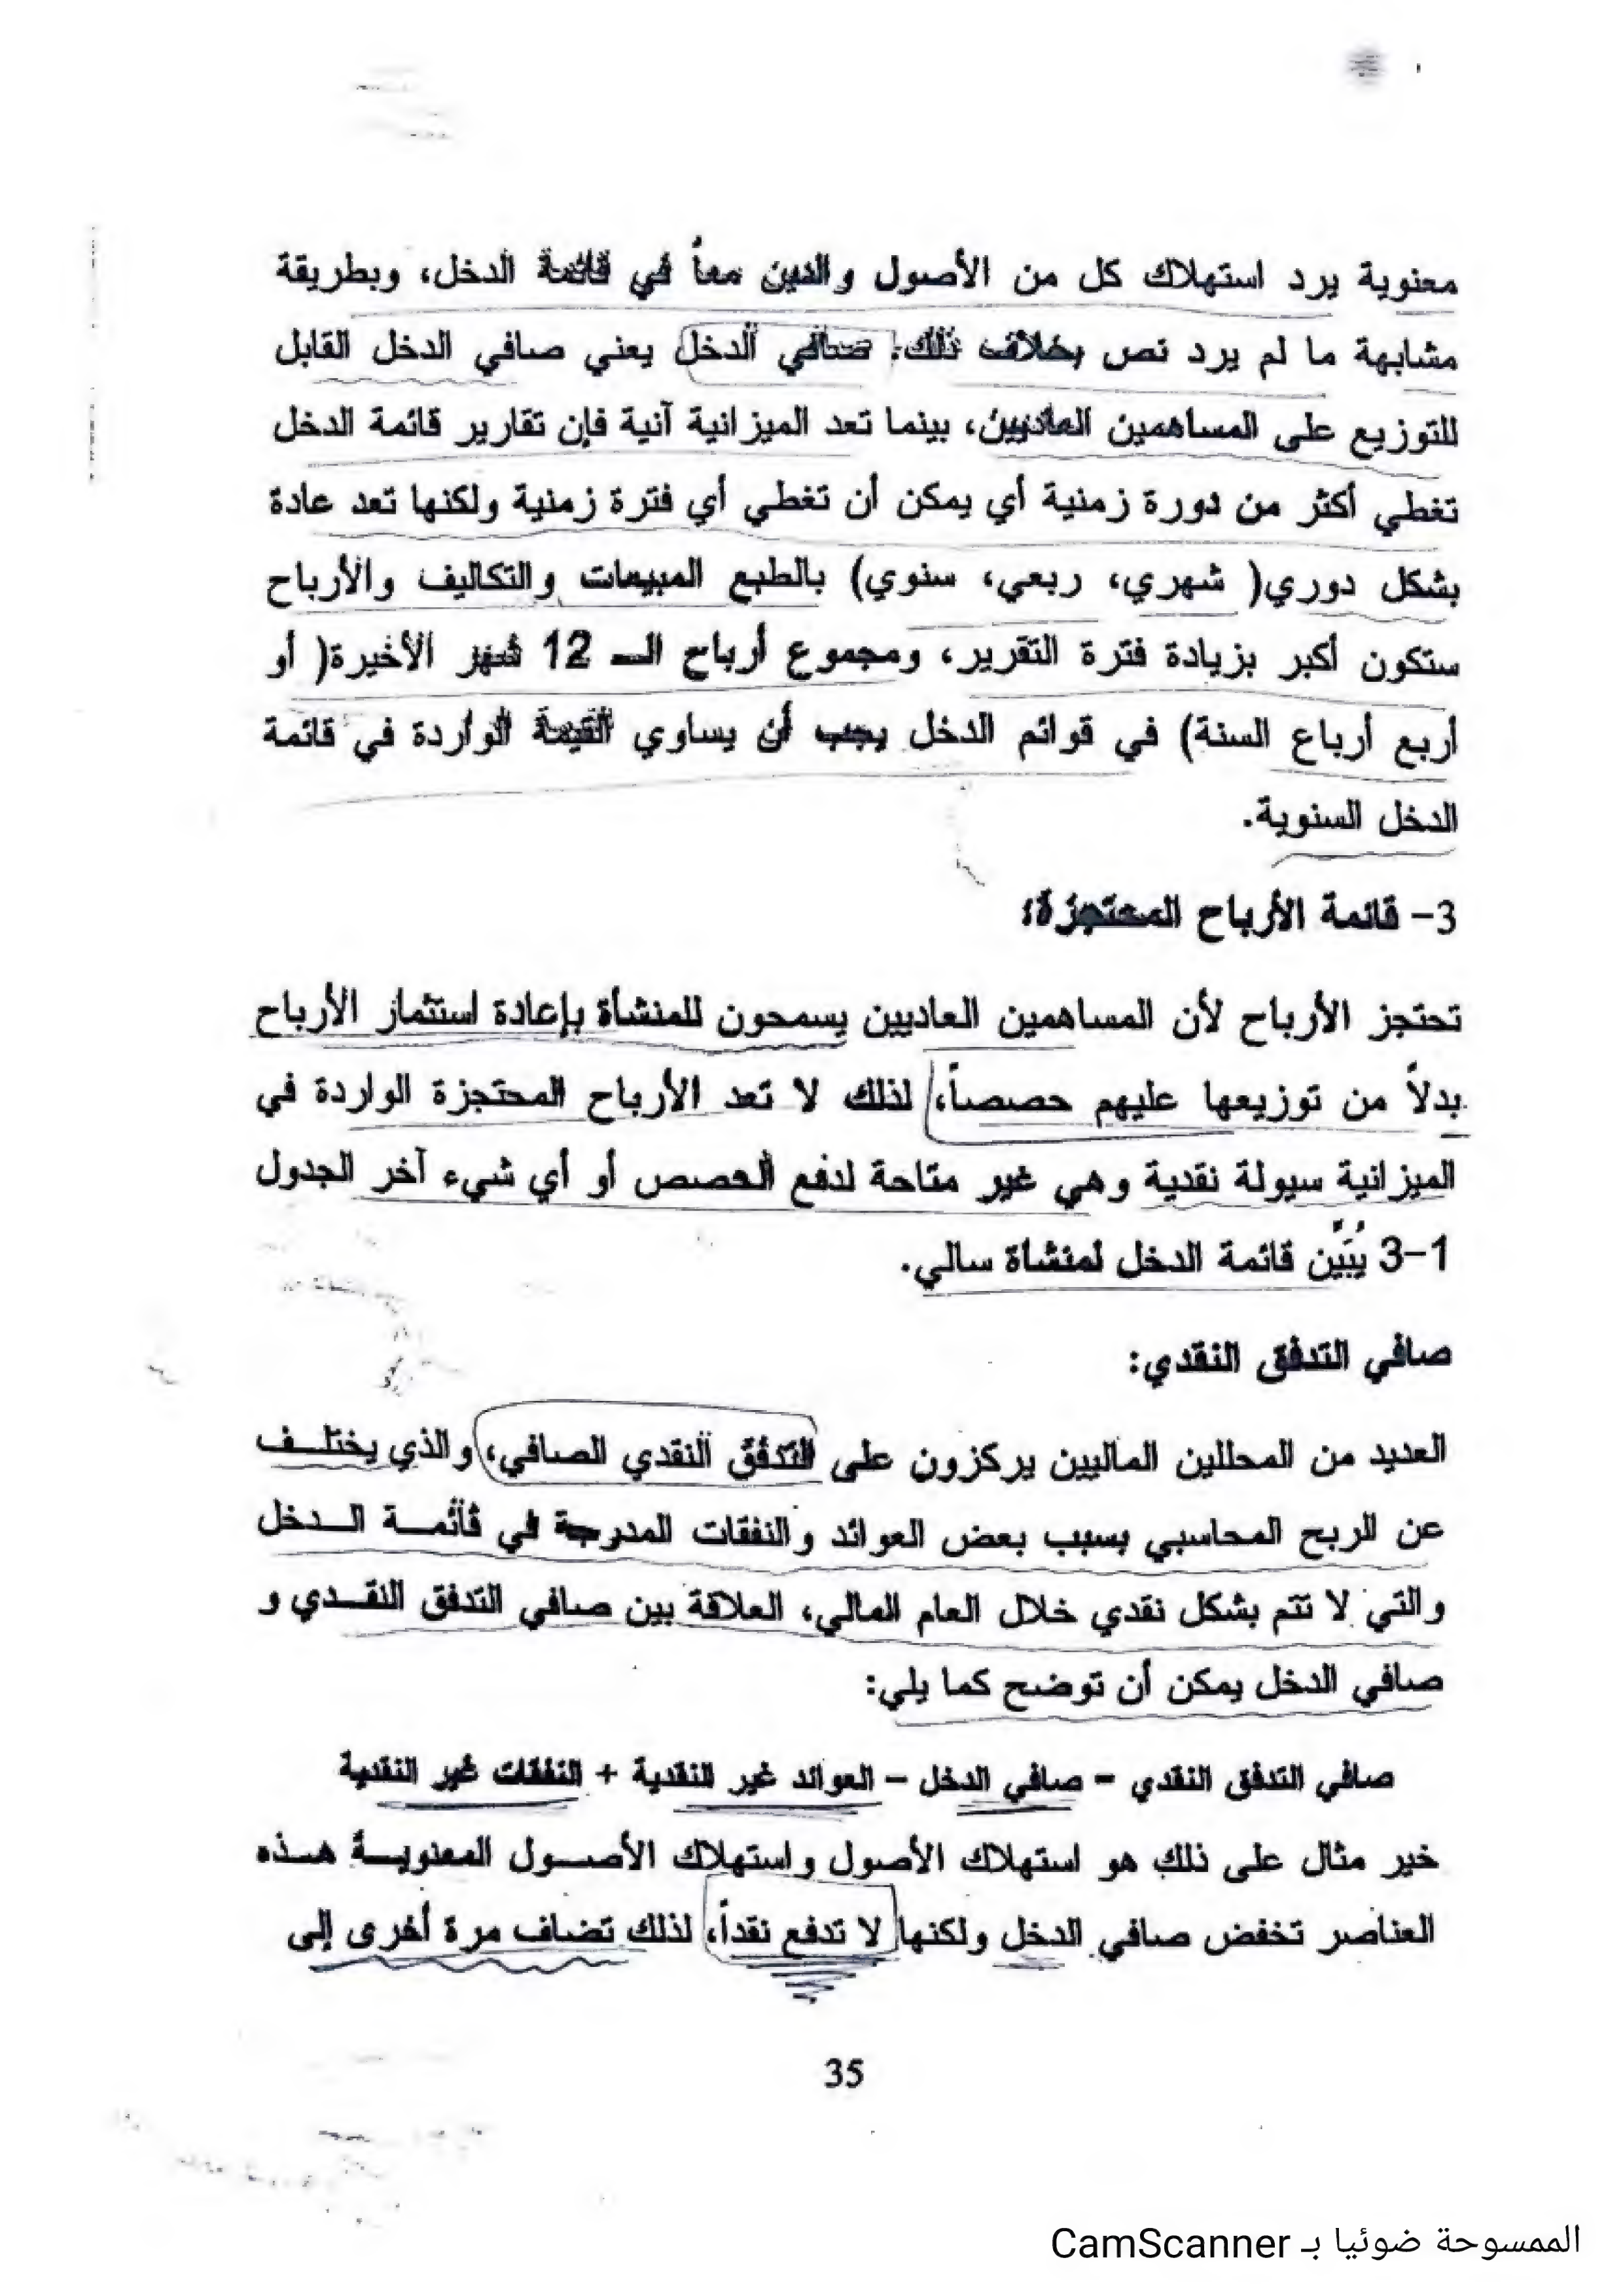 معنوية يرد استهلاك كل من الأصول والدين معاً في قائمة الدخل، وبطريقة
مشابهة ما لم يرد نص بخلاف ذلك. صافي الدخل يعني صافي الدخل القابل
للتوزيع على المساهمين العاديين، بينما تعد الميزانية آنية فإن تقارير قائمة الدخل
تغطي أكثر من دورة زمنية أي يمكن أن تغطي أي فترة زمنية ولكنها تعد عادة
بشكل دوري( شهري، ربعي، سنوي) بالطبع المبيعات والتكاليف والأرباح
ستكون أكبر بزيادة فترة التقرير، ومجموع أرباح الـ 12 شهر الأخيرة( أو
أربع أرباع السنة) في قوائم الدخل يجب أن يساوي القيمة الواردة في قائمة
الدخل السنوية.
3- قائمة الأرباح المحتجزة:
تحتجز الأرباح لأن المساهمين العاديين يسمحون للمنشأة بإعادة استثمار الأرباح
بدلاً من توزيعها عليهم حصصاً، لذلك لا تعد الأرباح المحتجزة الواردة في
الميزانية سيولة نقدية وهي غير متاحة لدفع الحصص أو أي شيء آخر الجدول
3-1 يُبَيِّن قائمة الدخل لمنشأة سالي.
صافي التدفق النقدي:
العديد من المحللين الماليين يركزون على التدفق النقدي الصافي، والذي يختلـف
عن الربح المحاسبي بسبب بعض العوائد والنفقات المدرجة في قائمـة الـدخل
والتي لا تتم بشكل نقدي خلال العام المالي، العلاقة بين صافي التدفق النقـدي و
صافي الدخل يمكن أن توضح كما يلي:
صافي التدفق النقدي = صافي الدخل – العوائد غير النقدية + النفقات غير النقدية
خير مثال على ذلك هو استهلاك الأصول واستهلاك الأصـول المعنويـة هـذه
العناصر تخفض صافي الدخل ولكنها لا تدفع نقداً، لذلك تضاف مرة أخرى إلى
35
الممسوحة ضوئيا بـ CamScanner